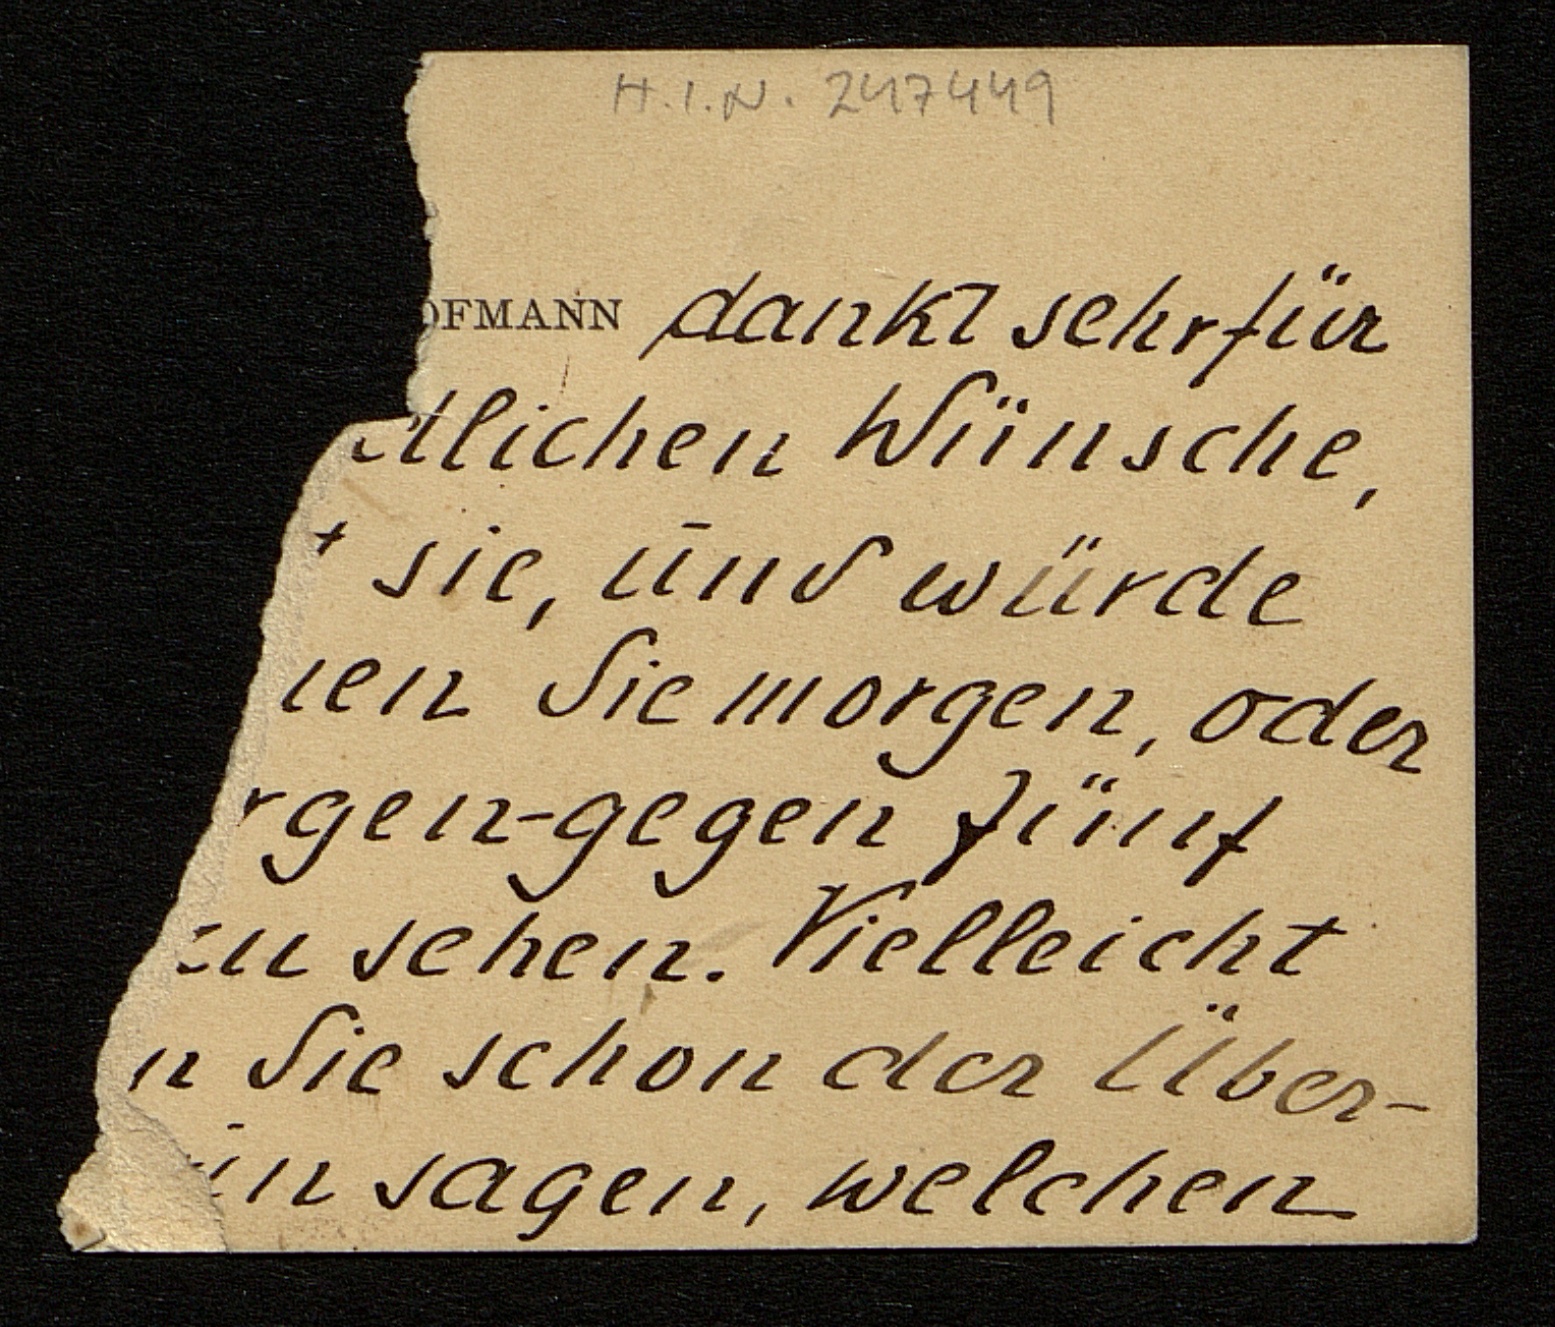 H.I.N. 247449
OFMANN dankt sehr für
tlichen Wünsche,
t sie, und würde
nen Sie morgen, oder
rgen-gegen fünf
zu sehen. Vielleicht
n Sie schon der Über-
in sagen, welchen